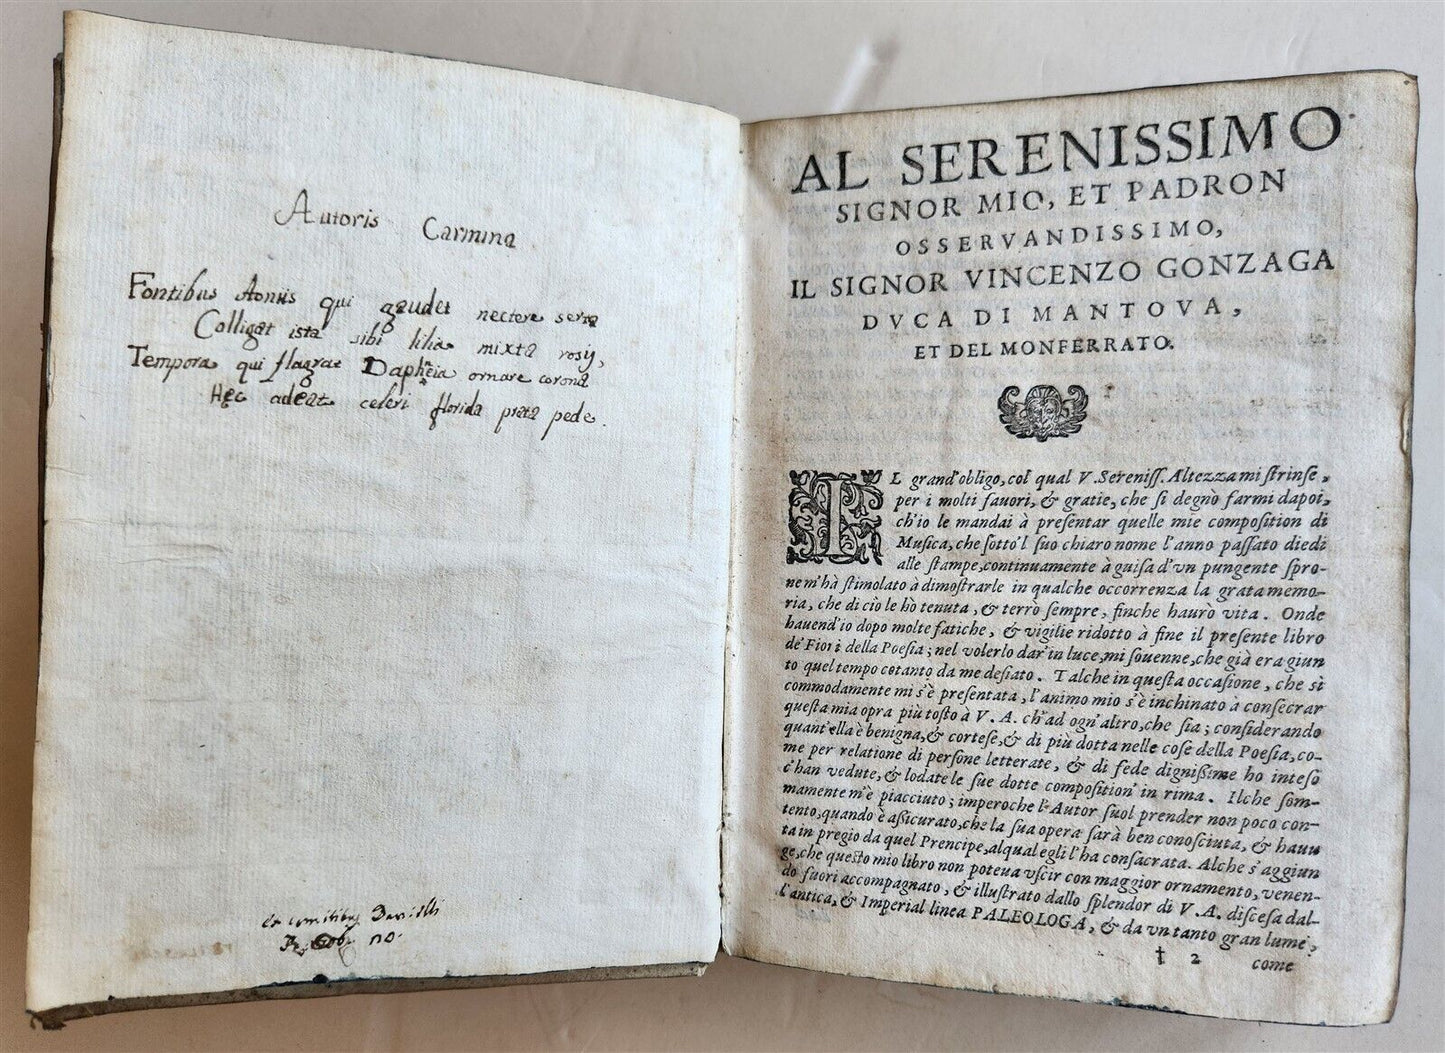 Autoris Carmina
Fontibus Aoniis qui gaudet nectere serta
Colligat ista sibi lilia mixta rosij,
Tempora qui flagrat Dapheia ornare corona
Hęc adeat celeri florida prata pede.
ex
no.
AL SERENISSIMO
SIGNOR MIO, ET PADRON
OSSERVANDISSIMO,
IL SIGNOR VINCENZO GONZAGA
DVCA DI MANTOVA,
ET DEL MONFERRATO.
IL grand'obligo, col qual V. Sereniss. Altezza mi strinse,
per i molti fauori, & gratie, che si degnò farmi dapoi,
ch'io le mandai à presentar quelle mie composition di
Musica, che sotto'l suo chiaro nome l'anno passato diedi
alle stampe, continuamente à guisa d'vn pungente spro-
ne m'hà stimolato à dimostrarle in qualche occorrenza la grata memo-
ria, che di ciò le hò tenuta, & terrò sempre, finche haurò vita. Onde
hauend'io dopo molte fatiche, & vigilie ridotto à fine il presente libro
de' Fiori della Poesia; nel volerlo dar'in luce, mi souenne, che già era giun
to quel tempo cotanto da me desiato. Talche in questa occasione, che sì
commodamente mi s'è presentata, l'animo mio s'è inchinato à consecrar
questa mia opra più tosto à V. A. ch'ad ogn'altro, che sia; considerando
quant'ella è benigna, & cortese, & di più dotta nelle cose della Poesia, co-
me per relatione di persone letterate, & di fede dignissime ho inteso
c'han vedute, & lodate le sue dotte composition' in rima. Ilche som-
mamente m'è piacciuto; imperoche l'Autor suol prender non poco con-
tento, quando è assicurato, che la sua opera sarà ben conosciuta, & hauu
ta in pregio da quel Prencipe, al qual egli l'ha consacrata. Alche s'aggiun
ge, che questo mio libro non poteua vscir con maggior ornamento, venen-
do fuori accompagnato, & illustrato dallo splendor di V. A. discesa dal-
l'antica, & Imperial linea PALEOLOGA, & da vn tanto gran lume,
† 2
come